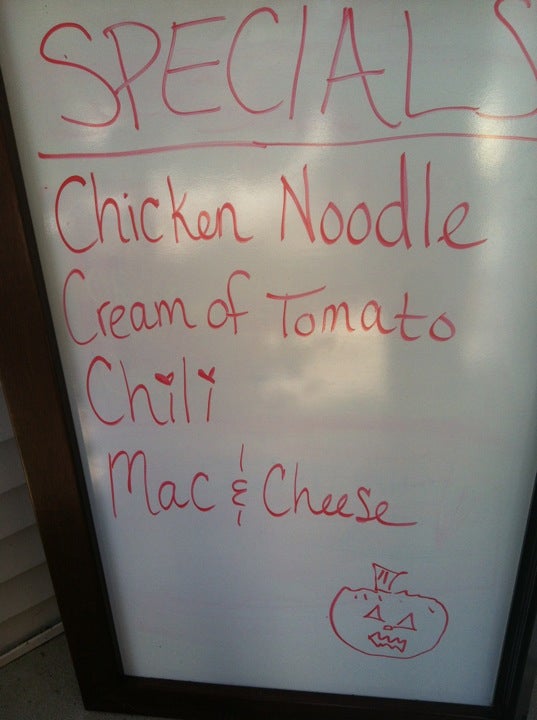 SPECIALS
Chicken Noodle
Cream of Tomato
Chili
Mac & Cheese